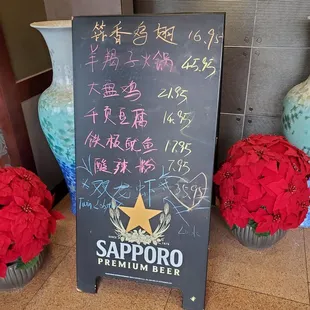 蒜香鸡翅 16.95
羊羯子火鍋 45.95
大盘鸡 21.95
千页豆腐 14.95
铁板魷鱼 17.95
酸辣粉 7.95
双龙虾 35.95
Twin Lobster
SAPPORO
PREMIUM BEER